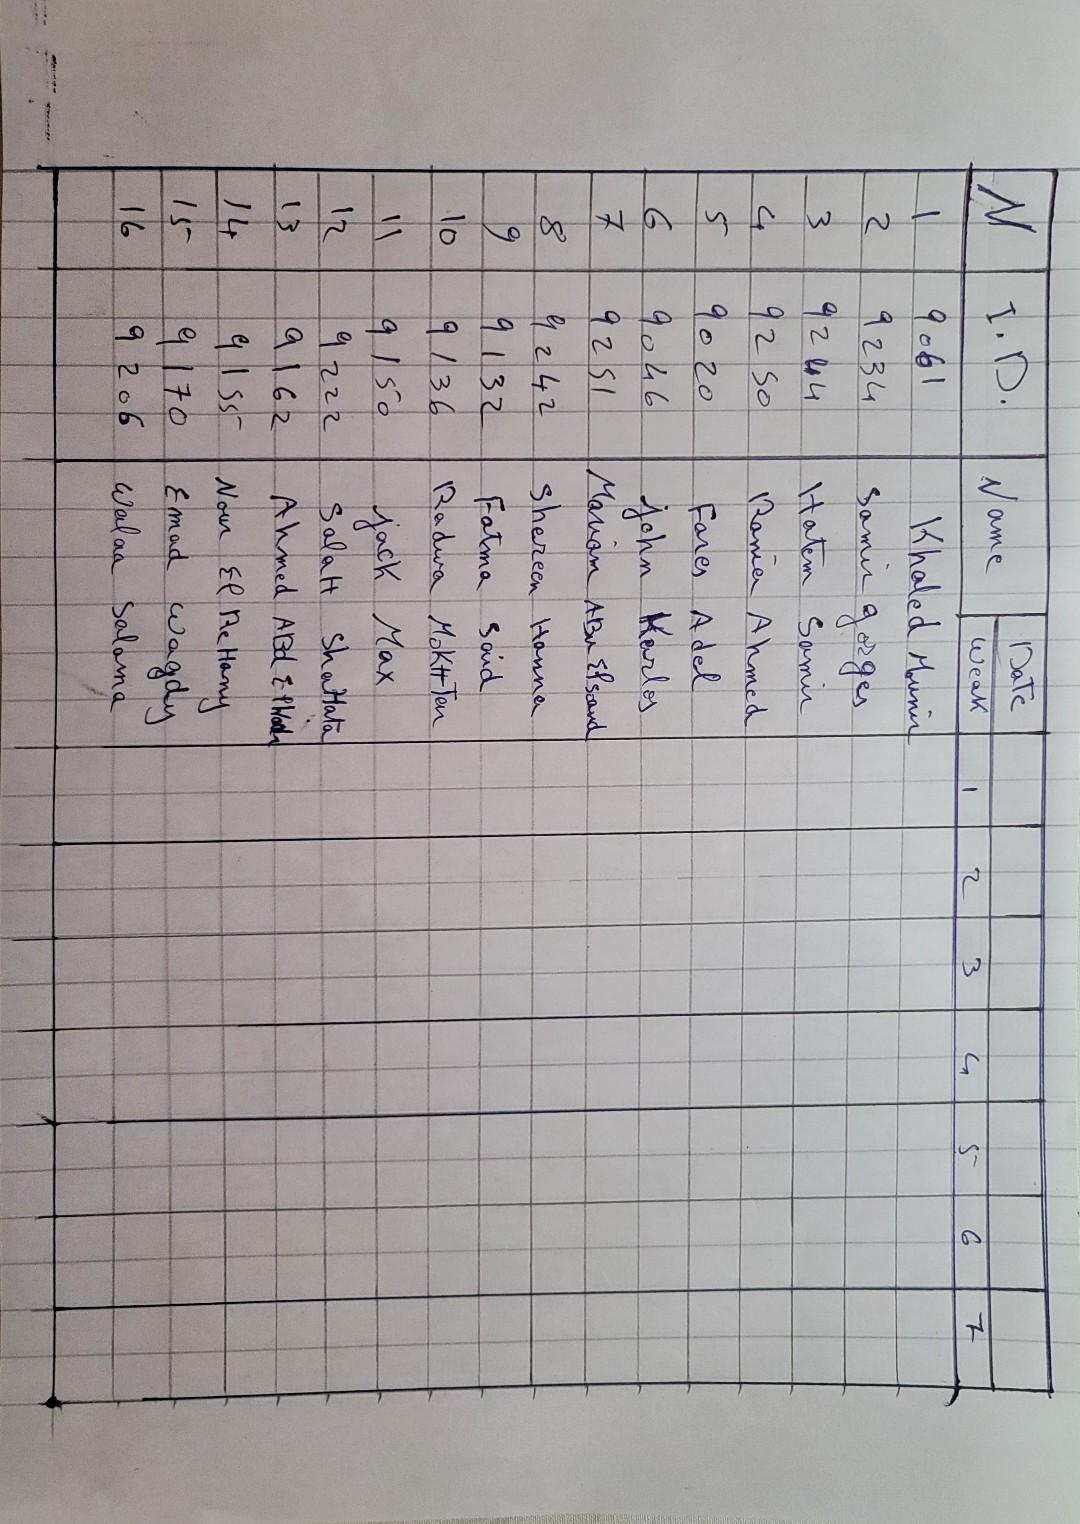 N I.D. Name Date
Weak 1 2 3 4 5 6 7
1 9061 Khaled Munir
2 9234 Samir gorges
3 9244 Hatem Samir
4 9250 Rania Ahmed
5 9020 Fares Adel
6 9046 john Karlos
7 9251 Mariam ABu Elsaud
8 9242 Shereen Hanna
9 9132 Fatma Said
10 9136 Radwa MoKHTar
11 9150 jack Max
12 9222 SalaH ShaHata
13 9162 Ahmed ABd
14 9155 Nour El Hamy
15 9170 Emad wagdy
16 9206 Walaa Salama